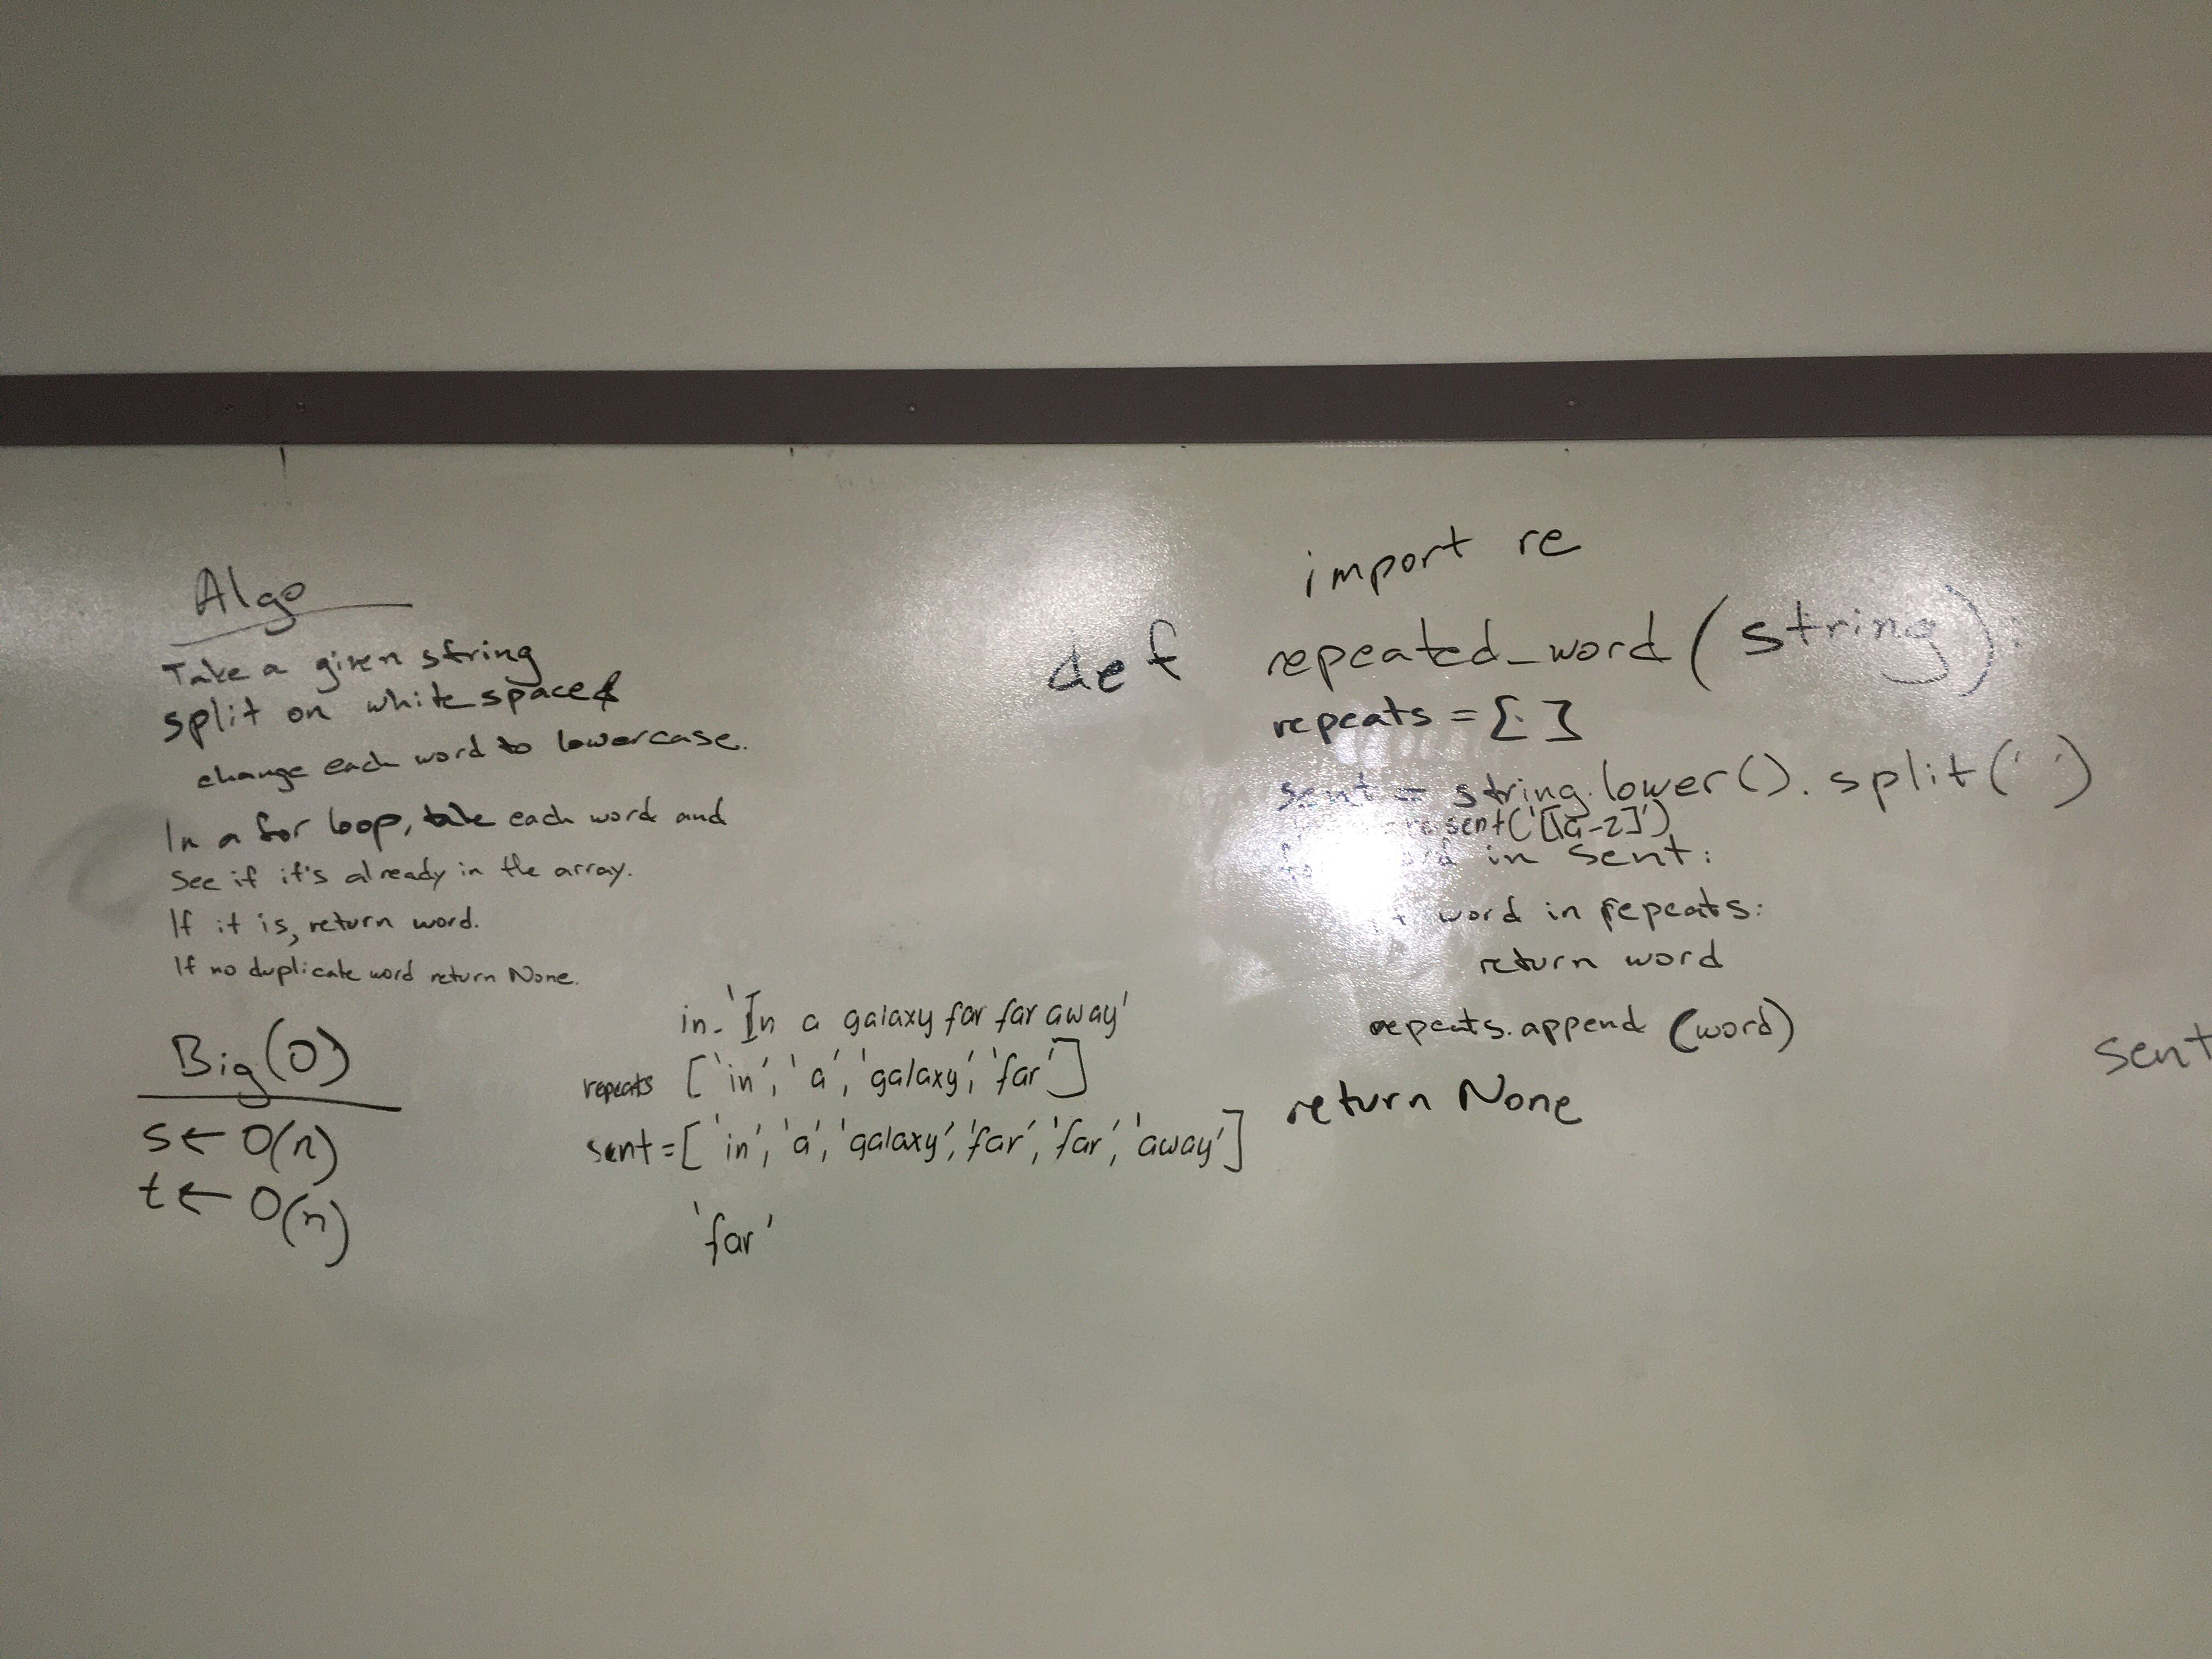 Algo
Take a given string
split on white space
change each word to lowercase.
In a for loop, take each word and
see if it's already in the array.
If it is, return word.
If no duplicate word return None.
Big(O)
s ← O(n)
t ← O(n)
in - 'In a galaxy far far away'
repeats ['in', 'a', 'galaxy', 'far']
sent = ['in', 'a', 'galaxy', 'far', 'far', 'away']
'far'
import re
def repeated_word(string):
repeats = []
sent = string.lower().split(' ')
in sent:
word in repeats:
return word
repeats.append(word)
return None
sent